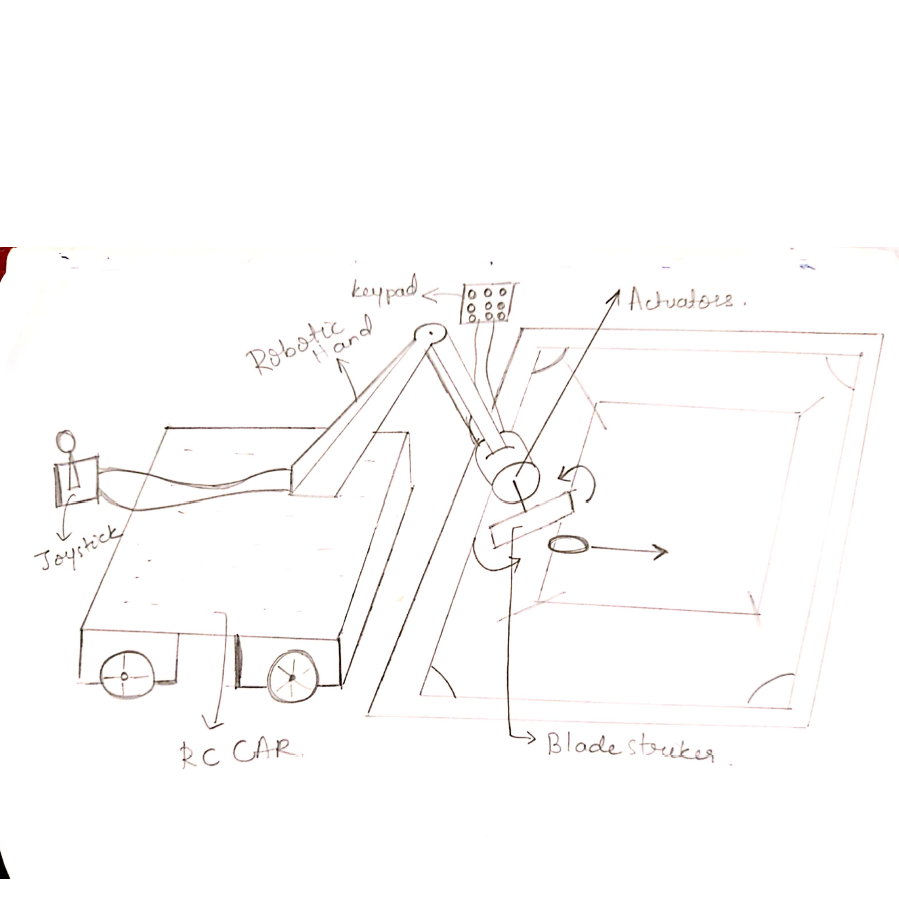 keypad
Actuators.
Robotic
Hand
Joystick
RC CAR.
Blade struker.